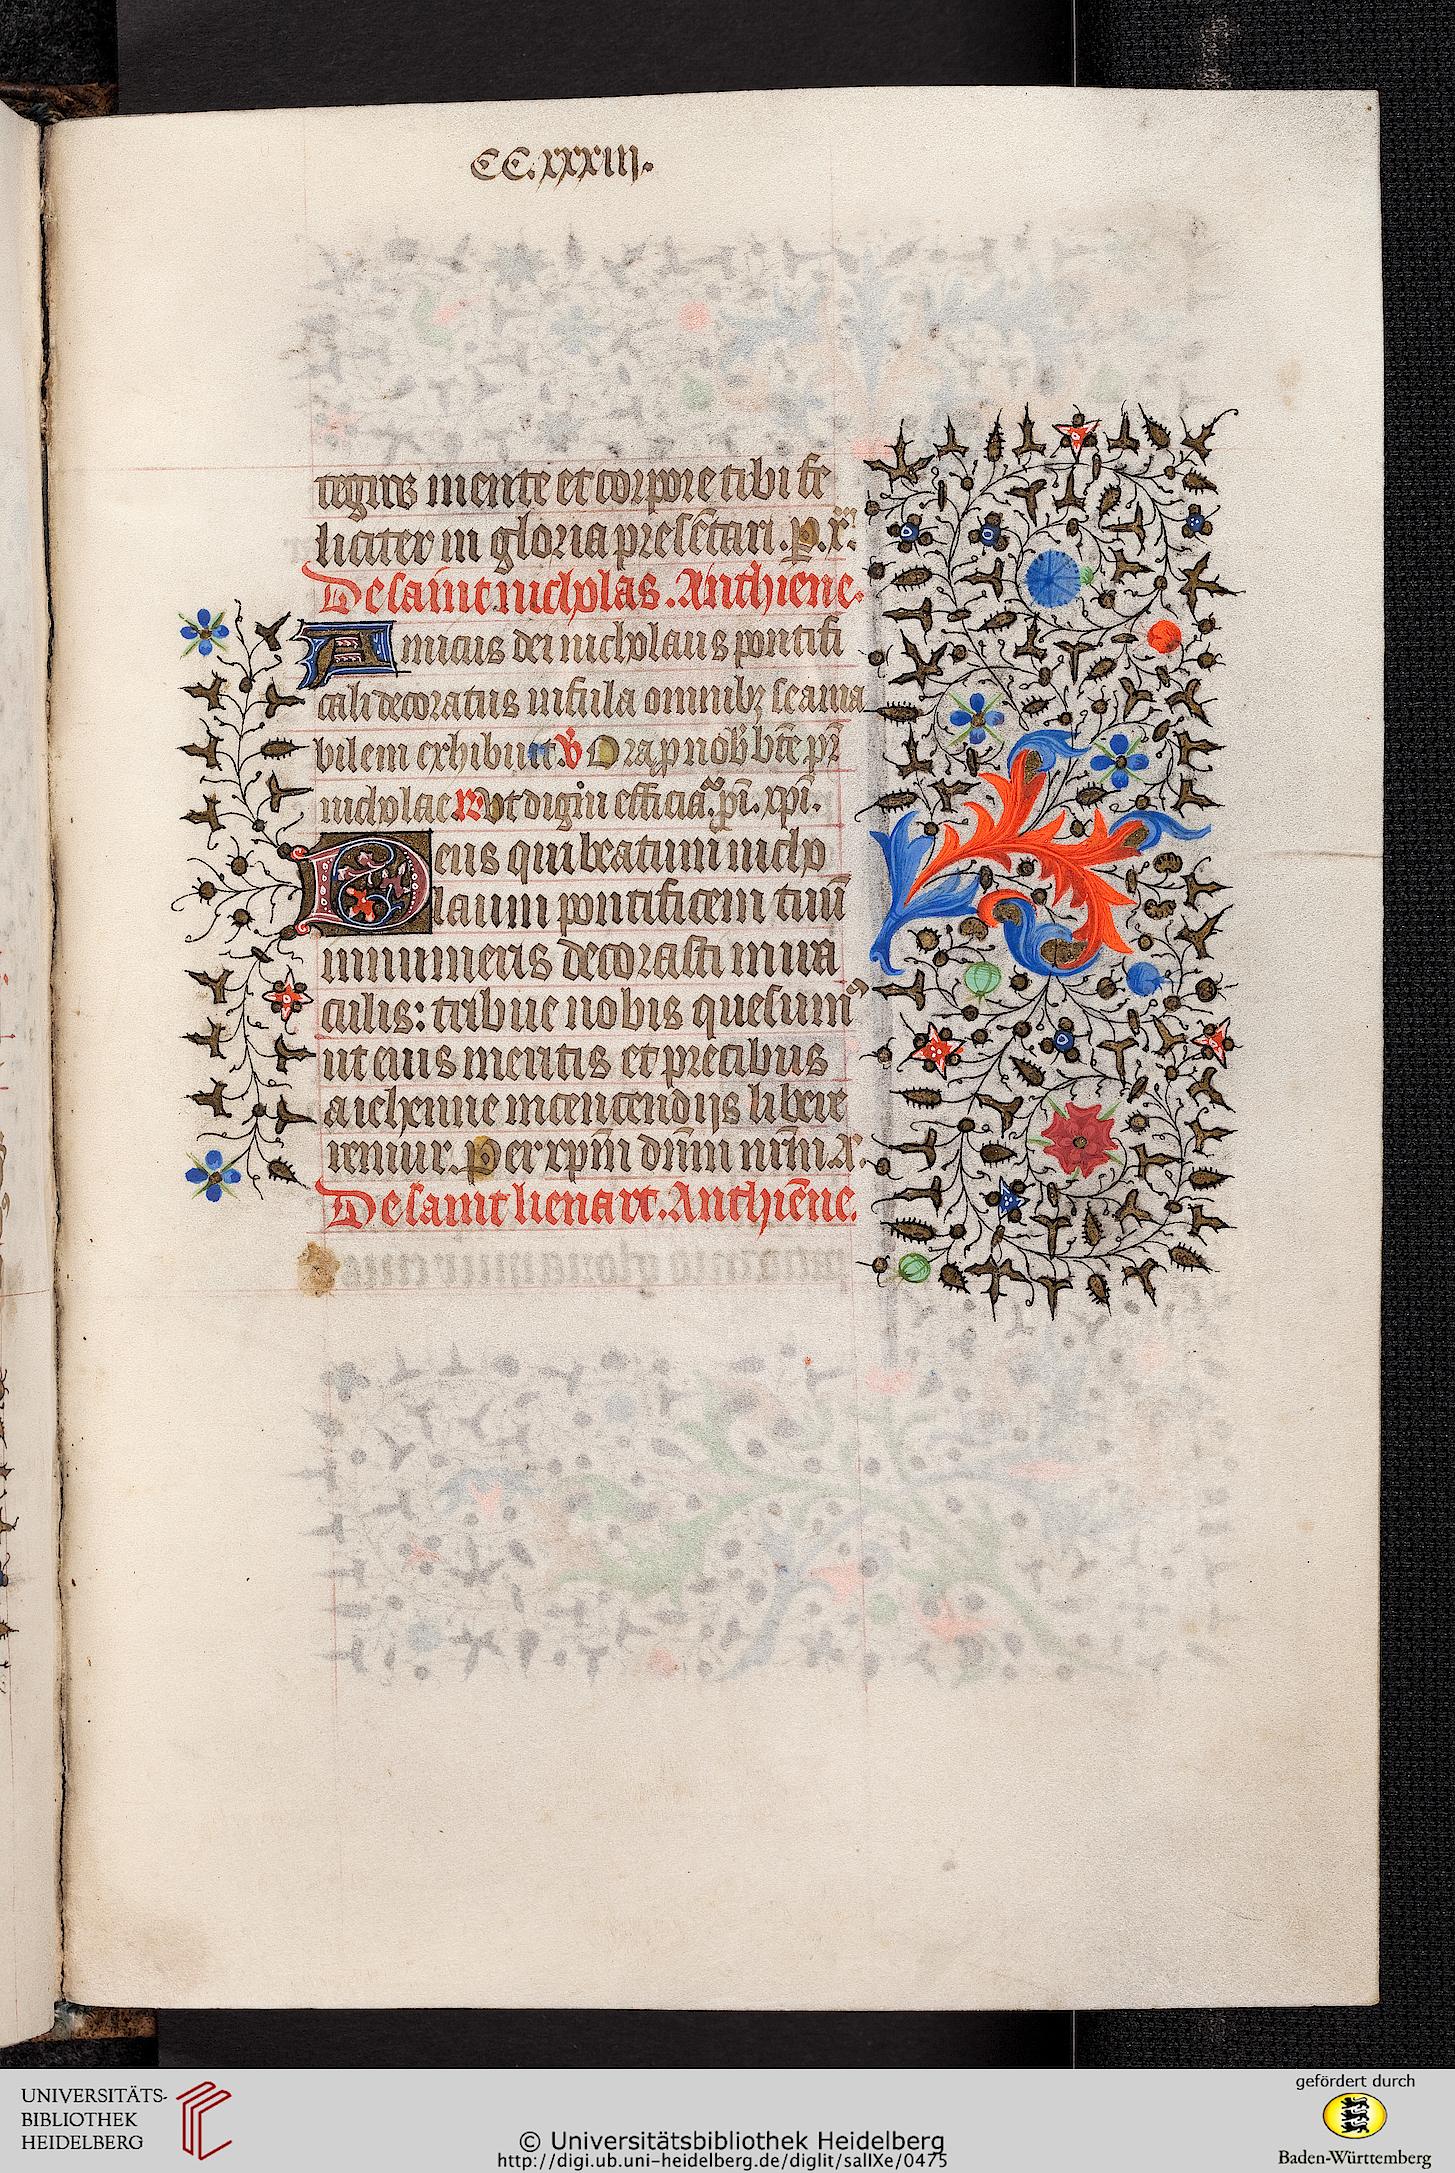 CC.xxxiij.
tegris mente et corpore tibi fe
liciter in gloria presẽtari. p. x̃.
De saint nicholas. Anthiene.
Amicus dei nicholaus pontifi
cali decoratus infula omnibꝫ se ama
bilem exhibuit. V̾ Ora ꝓ nob̃ bt̃e pr̃
nicholae R̾ Vt digni efficiaꝰ. pͥ. xp̃i.
Deus qui beatum nicho
laum pontificem tuũ
innumeris decorasti mira
culis: tribue nobis quesumꝰ
ut eius meritis et precibus
a iehenne incencendijs libere
remur. Per xp̃m dñm nr̃m. A.
De saint lienart. Anthiẽne.
UNIVERSITÄTS-
BIBLIOTHEK
HEIDELBERG
© Universitätsbibliothek Heidelberg
http://digi.ub.uni-heidelberg.de/diglit/salIXe/0475
gefördert durch
Baden-Württemberg